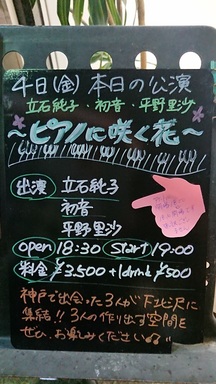 4日(金) 本日の公演
立石純子・初音・平野里沙
～ピアノに咲く花～
出演 立石純子
初音
平野里沙
open 18:30 start 19:00
料金 ¥3,500 +1drink ¥500
神戸で出会った3人が下北沢に
集結!! 3人の作り出す空間を
ぜひ、お楽しみください♪